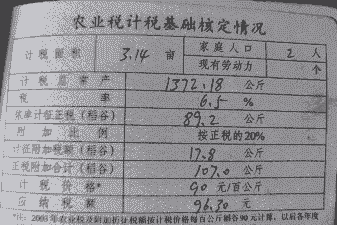 农业税计税基础核定情况
计税面积 3.14 亩 家庭人口 2 人
现有劳动力 个
计税总常产 1372.18 公斤
税率 6.5 %
依率计征正税(稻谷) 89.2 公斤
附加比例 按正税的20%
计征附加税额(稻谷) 17.8 公斤
正税附加合计(稻谷) 107.0 公斤
计税价格* 90 元/百公斤
应纳税额 96.30 元
*注:2003年农业税及附加折征税额按计税价格每百公斤稻谷90元计算,以后各年度